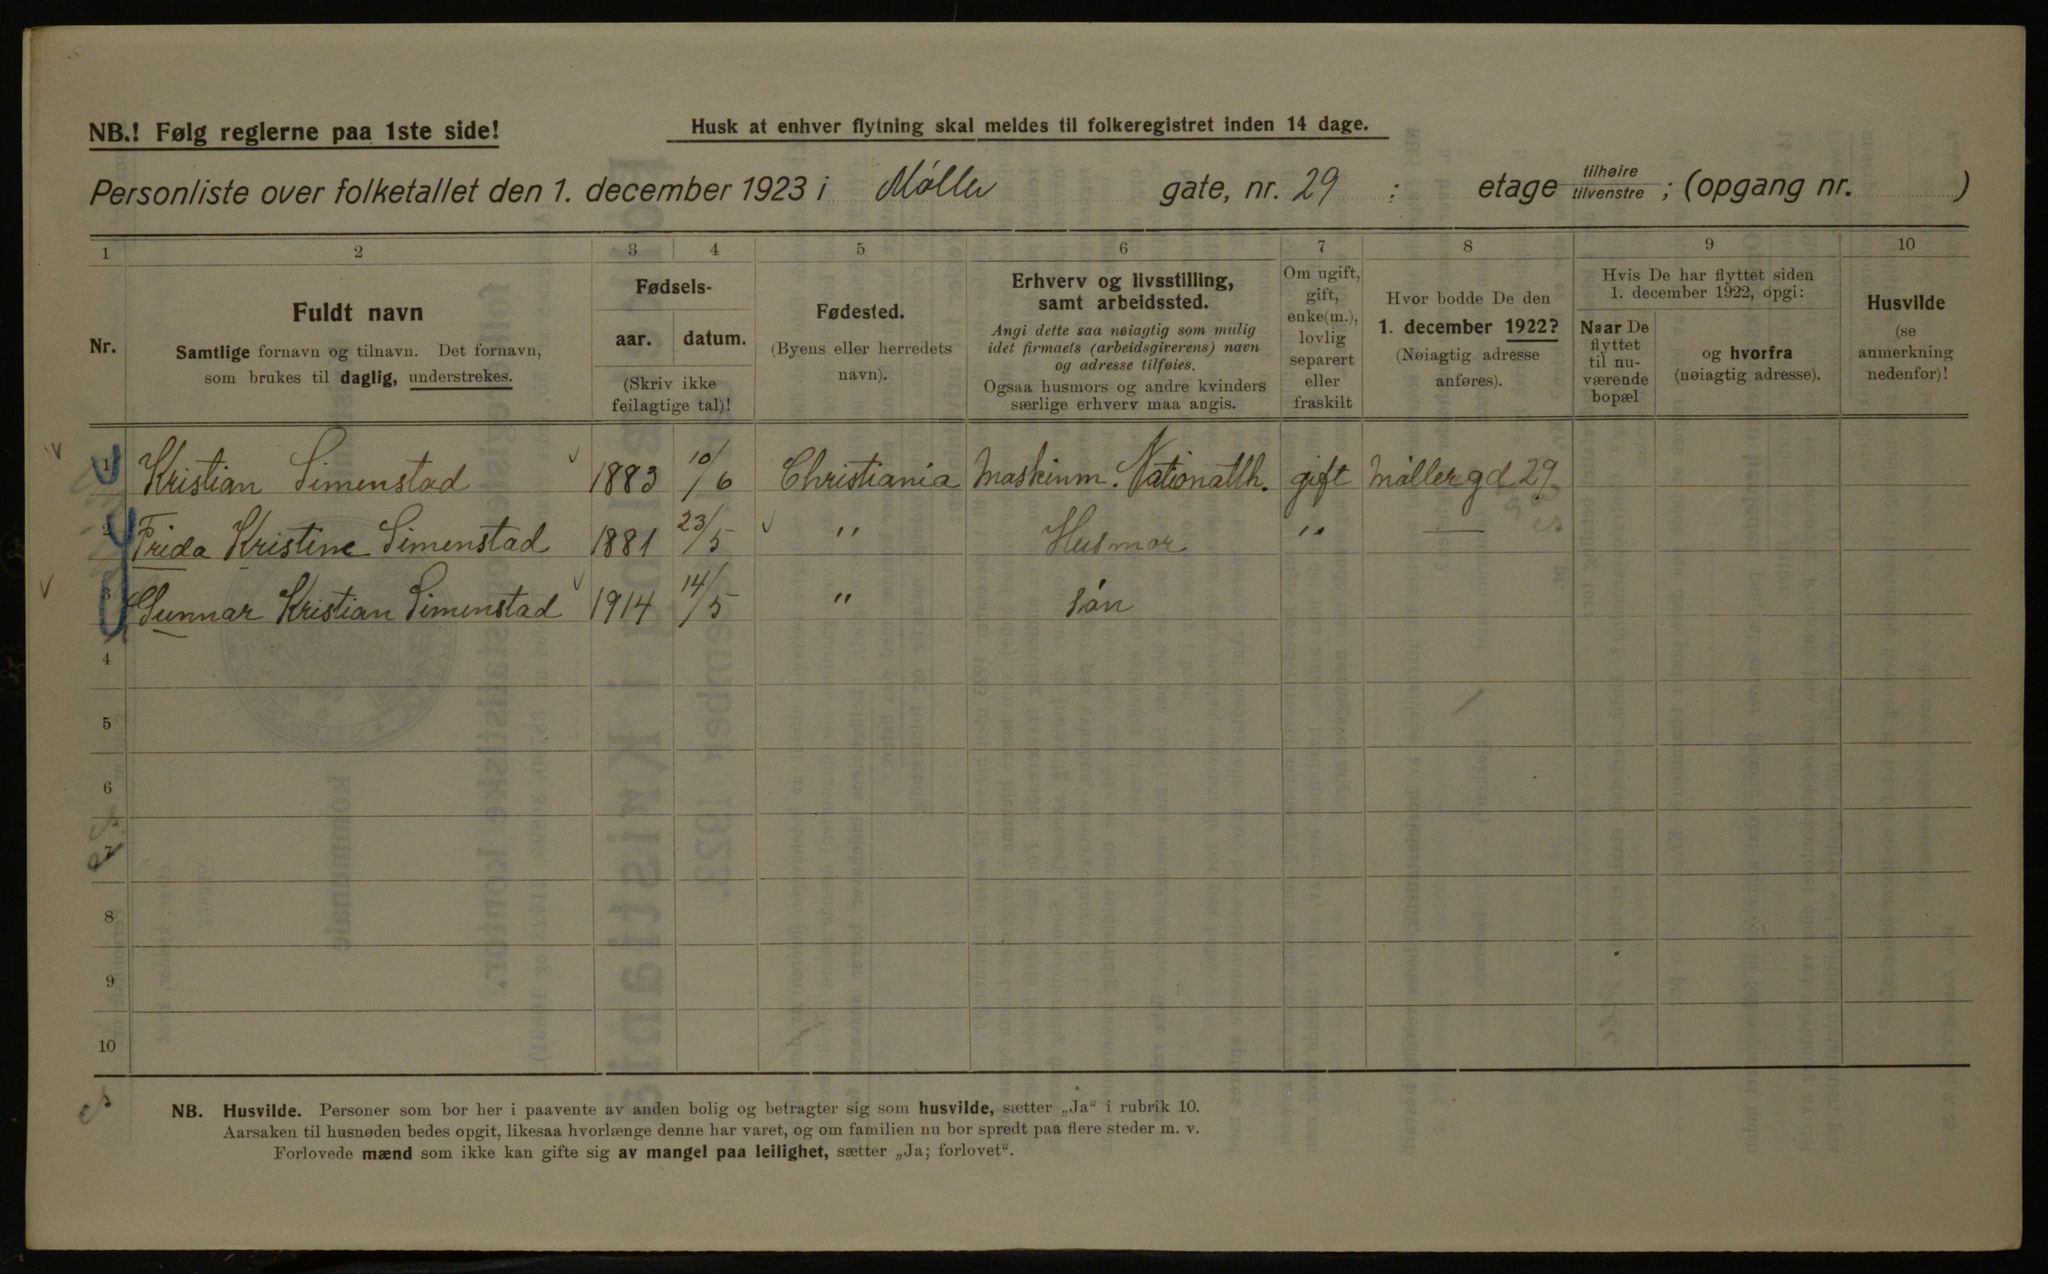 NB.! Følg reglerne paa 1ste side!
Husk at enhver flytning skal meldes til folkeregistret inden 14 dage.
Personliste over folketallet den 1. december 1923 i Møller gate, nr. 29 ; etage tilhøire tilvenstre ; (opgang nr. )
1 2 3 4 5 6 7 8 9 10
Nr.
Fuldt navn
Samtlige fornavn og tilnavn. Det fornavn,
som brukes til daglig, understrekes.
Fødsels-
aar. datum.
(Skriv ikke
feilagtige tal)!
Fødested.
(Byens eller herredets
navn).
Erhverv og livsstilling,
samt arbeidssted.
Angi dette saa nøiagtig som mulig
idet firmaets (arbeidsgiverens) navn
og adresse tilføies.
Ogsaa husmors og andre kvinders
særlige erhverv maa angis.
Om ugift,
gift,
enke(m.),
lovlig
separert
eller
fraskilt
Hvor bodde De den
1. december 1922?
(Nøiagtig adresse
anføres).
Hvis De har flyttet siden
1. december 1922, opgi:
Naar De
flyttet
til nu-
værende
bopæl
og hvorfra
(nøiagtig adresse).
Husvilde
(se
anmerkning
nedenfor)!
1 Kristian Simenstad 1883 10/6 Christiania Maskinm. Nationalth. gift Møllergd 29
2 Frida Kristine Simenstad 1881 23/5 " Husmor " —
3 Gunnar Kristian Simenstad 1914 14/5 " søn
4
5
6
7
8
9
10
NB. Husvilde. Personer som bor her i paavente av anden bolig og betragter sig som husvilde, sætter „Ja“ i rubrik 10.
Aarsaken til husnøden bedes opgit, likesaa hvorlænge denne har varet, og om familien nu bor spredt paa flere steder m. v.
Forlovede mænd som ikke kan gifte sig av mangel paa leilighet, sætter „Ja; forlovet“.